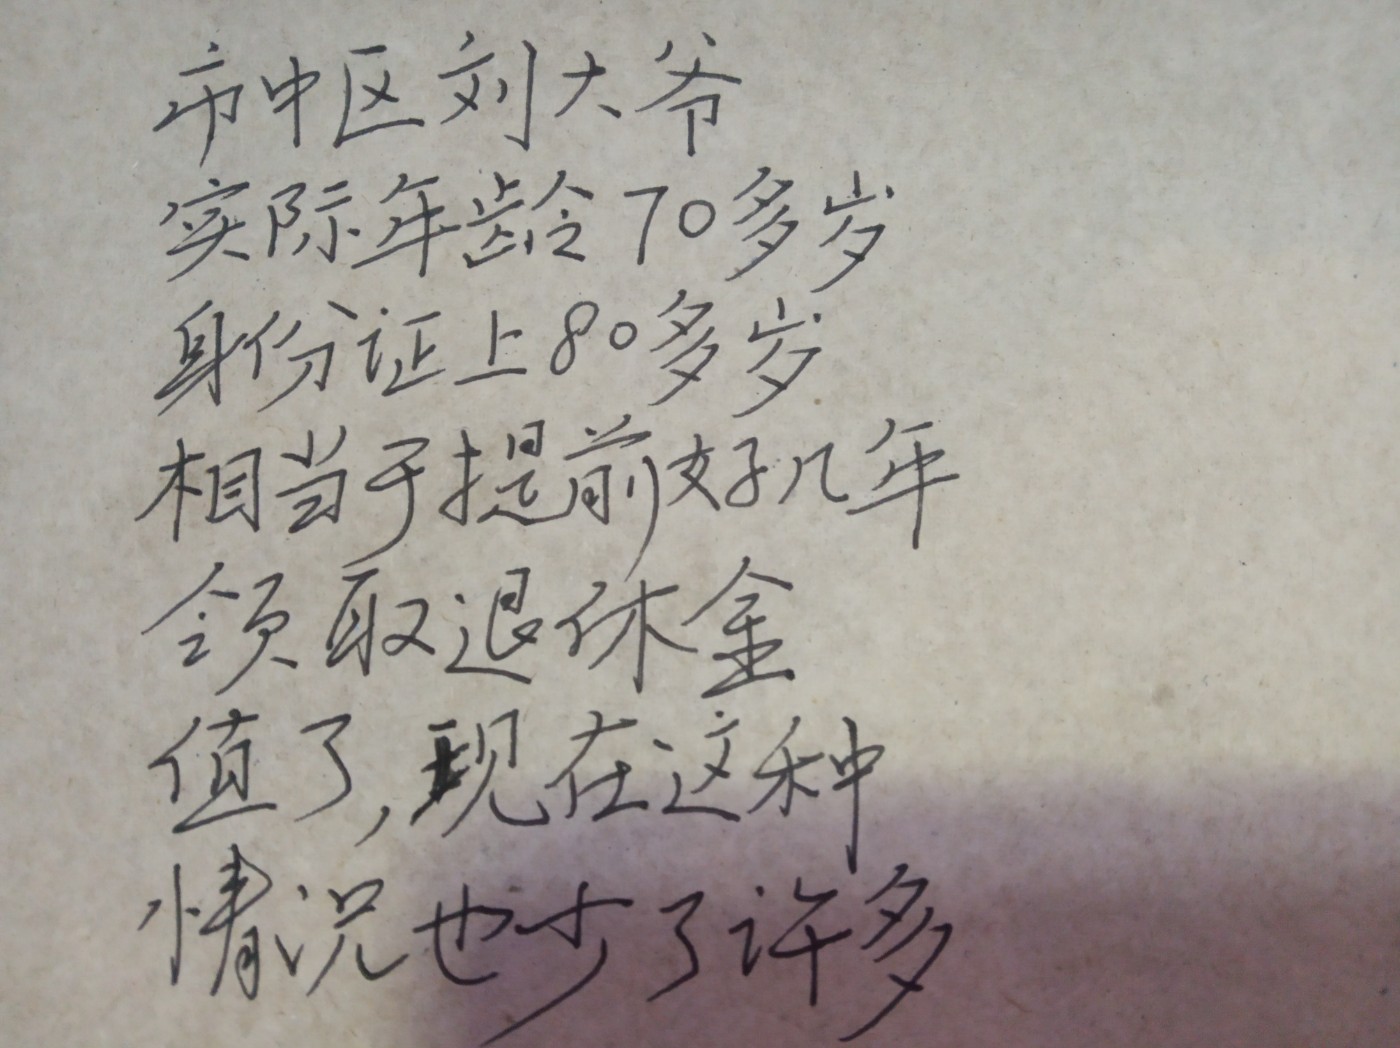 市中区刘大爷
实际年龄70多岁
身份证上80多岁
相当于提前好几年
领取退休金
值了,现在这种
情况也少了许多